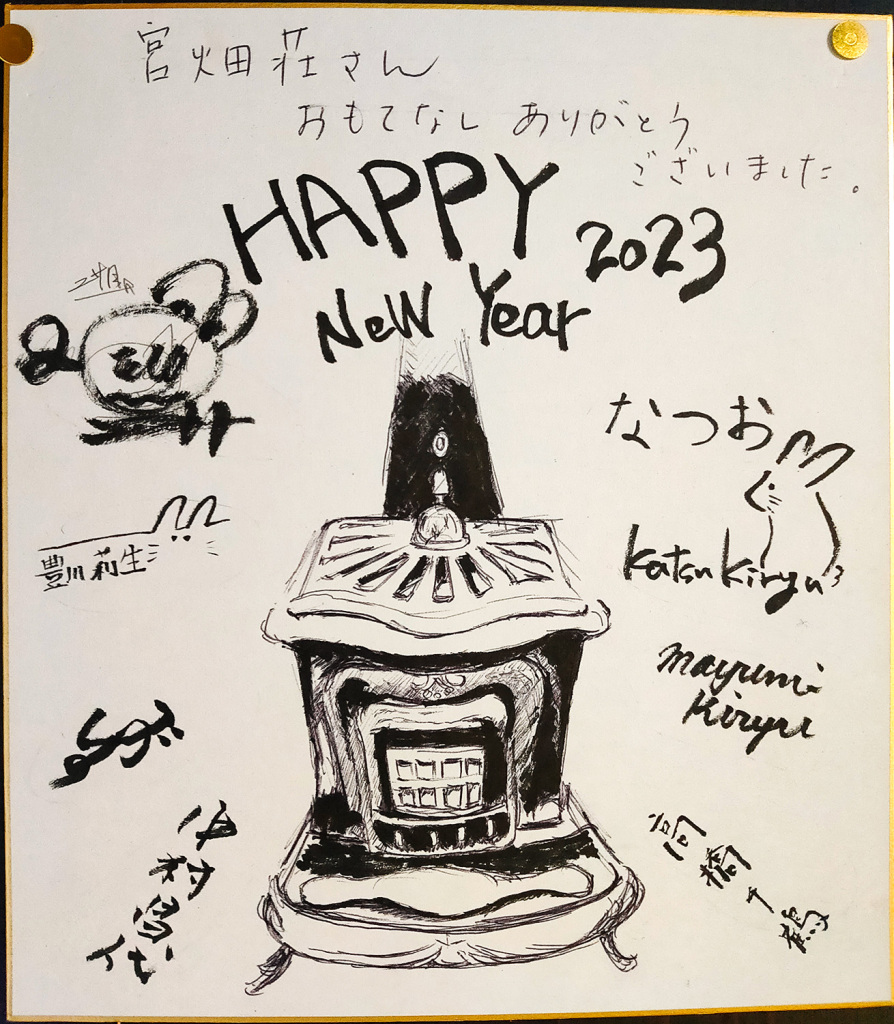 宮畑荘さん
おもてなし ありがとう
ございました。
HAPPY 2023
New Year
なつお
豊川莉生
Katsu Kiryu
mayumi
Kiryu
高橋千鶴